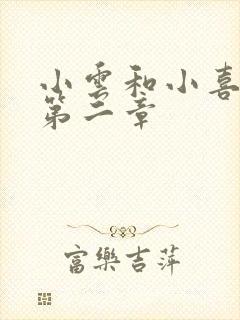 小雲和小喜
第二章
富樂吉萍